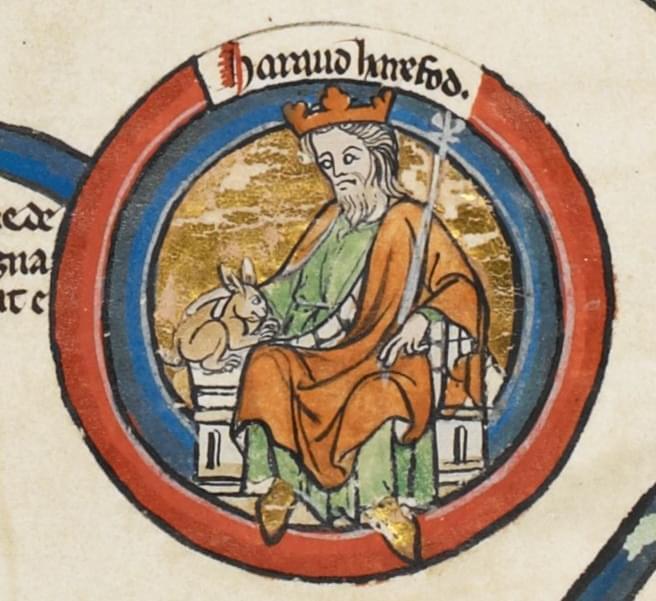 Haraud harefod.
ne de
gna
it e